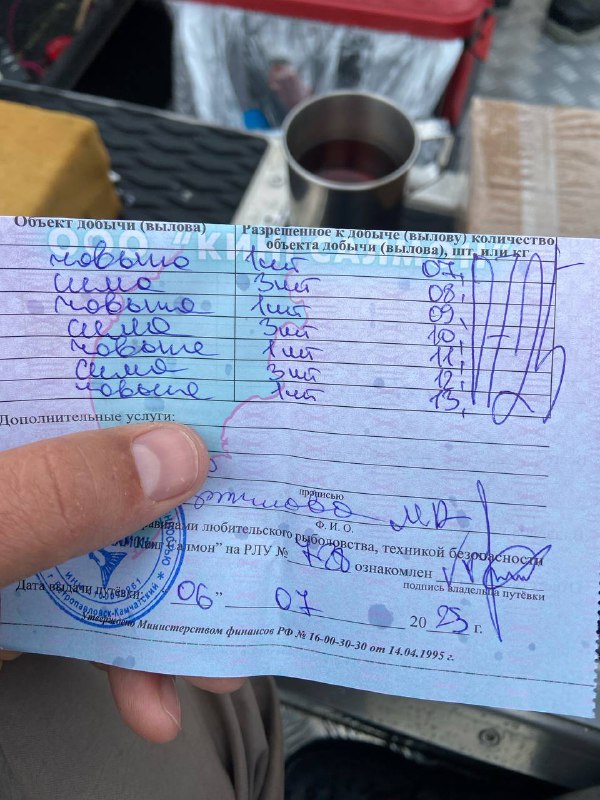 Объект добычи (вылова) Разрешенное к добыче (вылову) количество объекта добычи (вылова), шт. или кг
ООО "КИНГ САЛМОН"
чавыча 1 шт 07.
сима 3 шт 08.
чавыча 1 шт 09.
сима 3 шт 10.
чавыча 1 шт 11.
сима 3 шт 12.
чавыча 1 шт 13.
Дополнительные услуги:
прописью
Ф. И. О.
правилами любительского рыболовства, техникой безопасности
Кинг Салмон" на РЛУ № ознакомлен
подпись владельца путёвки
Дата выдачи путёвки: "06" 07 2025 г.
Утверждено Министерством финансов РФ № 16-00-30-30 от 14.04.1995 г.
г. Петропавловск-Камчатский